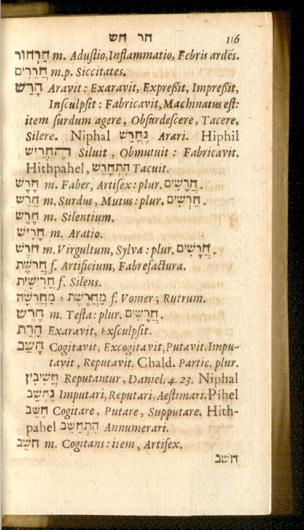 חר חש 116
חַרְחוּר m. Adustio, Inflammatio, Febris ardēs.
חֲרֵרִים m.p. Siccitates.
חָרַשׁ Aravit: Exaravit, Expressit, Impressit,
Insculpsit: Fabricavit, Machinatus est:
item surdum agere, Obsurdescere, Tacere,
Silere. Niphal נֶחֱרַשׁ Arari. Hiphil
הֶחֱרִישׁ Siluit, Obmutuit: Fabricavit.
Hithpahel, הִתְחָרֵשׁ Tacuit.
חָרָשׁ m. Faber, Artifex: plur. חָרָשִׁים.
חֵרֵשׁ m. Surdus, Mutus: plur. חֵרְשִׁים.
חֶרֶשׁ m. Silentium.
חָרִישׁ m. Aratio.
חֹרֶשׁ m. Virgultum, Sylva: plur. חֳרָשִׁים.
חֲרֹשֶׁת f. Artificium, Fabrefactura.
חֲרִישִׁית f. Silens.
מַחֲרֶשֶׁת, מַחֲרֵשָׁה f. Vomer; Rutrum.
חֶרֶשׂ m. Testa: plur. חֲרָשִׂים.
חָרַת Exaravit, Exsculpsit.
חָשַׁב Cogitavit, Excogitavit, Putavit. Impu-
tavit, Reputavit. Chald. Partic. plur.
חֲשִׁיבִין Reputantur, Daniel. 4. 23. Niphal
נֶחְשַׁב Imputari, Reputari. Aestimari. Pihel
חִשֵּׁב Cogitare, Putare, Supputare. Hith-
pahel הִתְחַשֵּׁב Annumerari.
חֹשֵׁב m. Cogitans: item, Artifex.
חשב